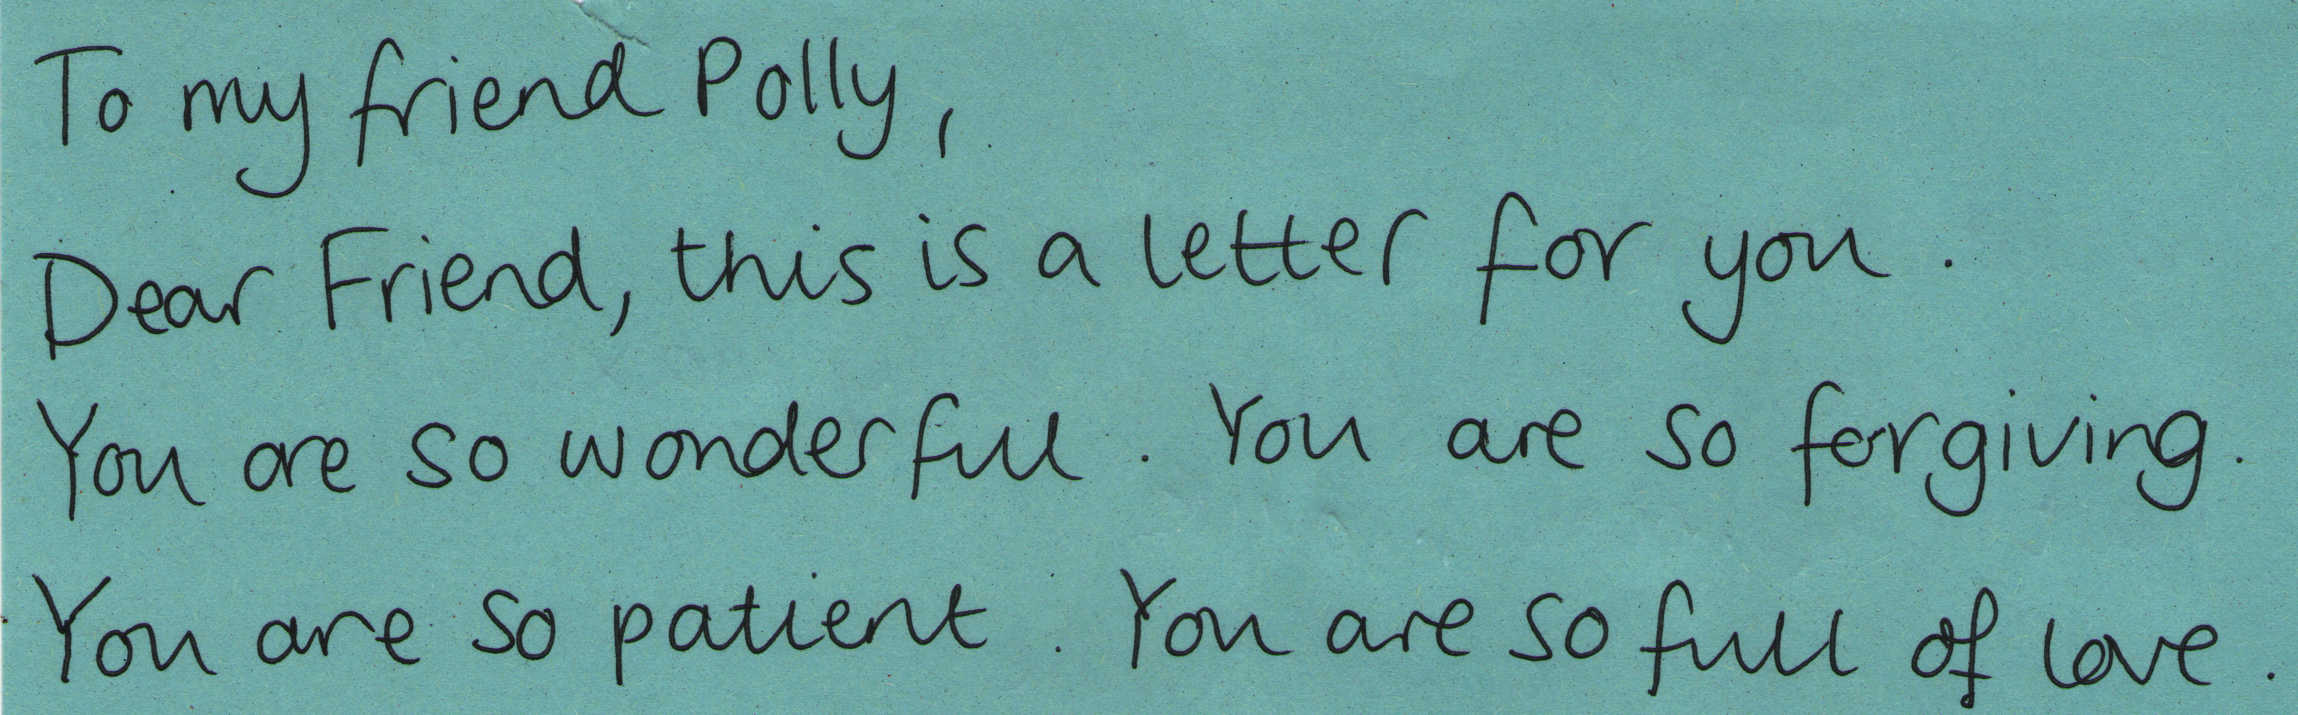 To my friend Polly,
Dear Friend, this is a letter for you.
You are so wonderful. You are so forgiving.
You are so patient. You are so full of love.